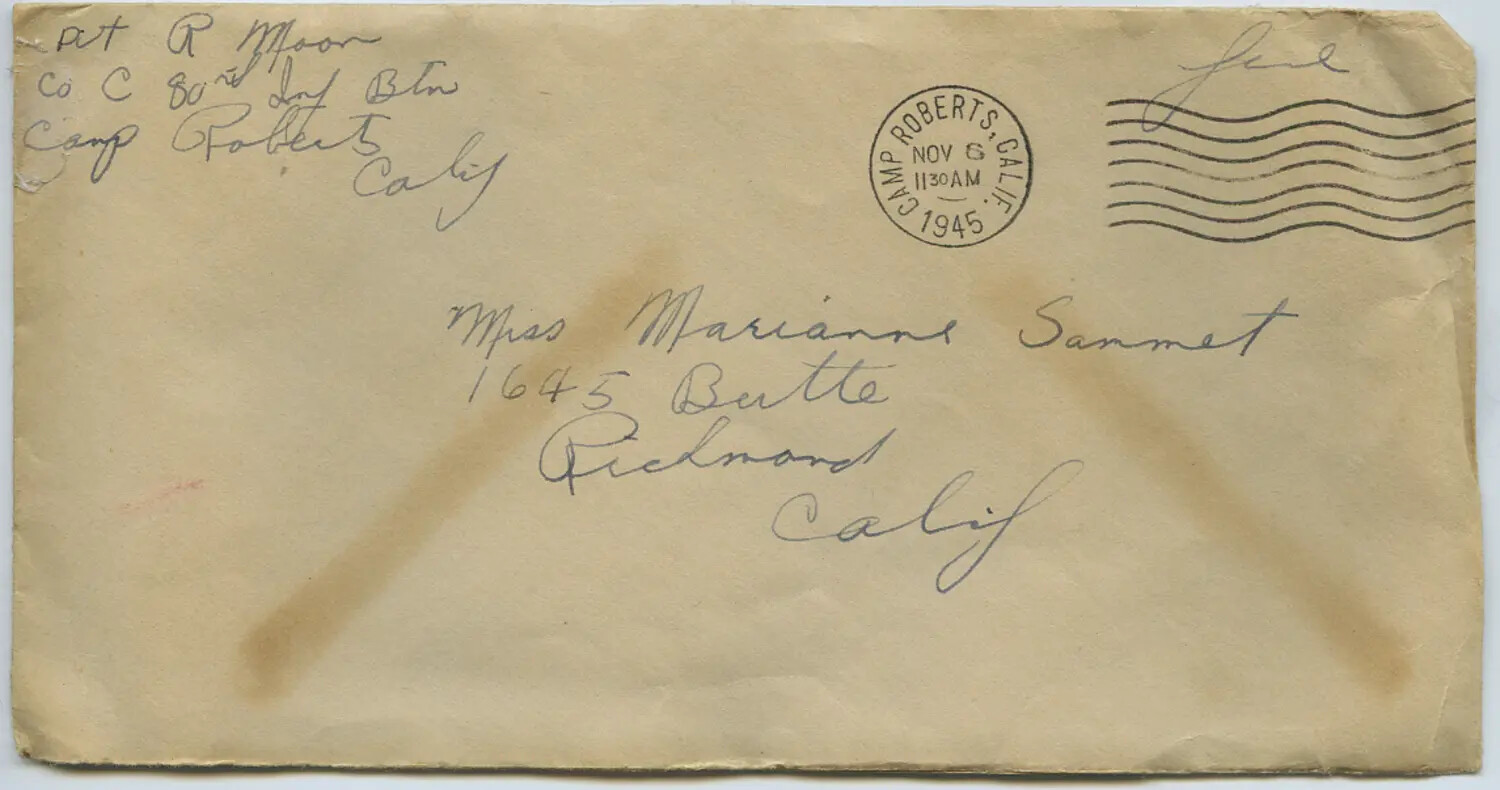 Pvt R Moon
Co C 80nd Inf Btn
Camp Roberts
Calif
Free
CAMP ROBERTS, CALIF.
NOV 6
1130AM
1945
Miss Marianne Sammet
1645 Butte
Richmond
Calif